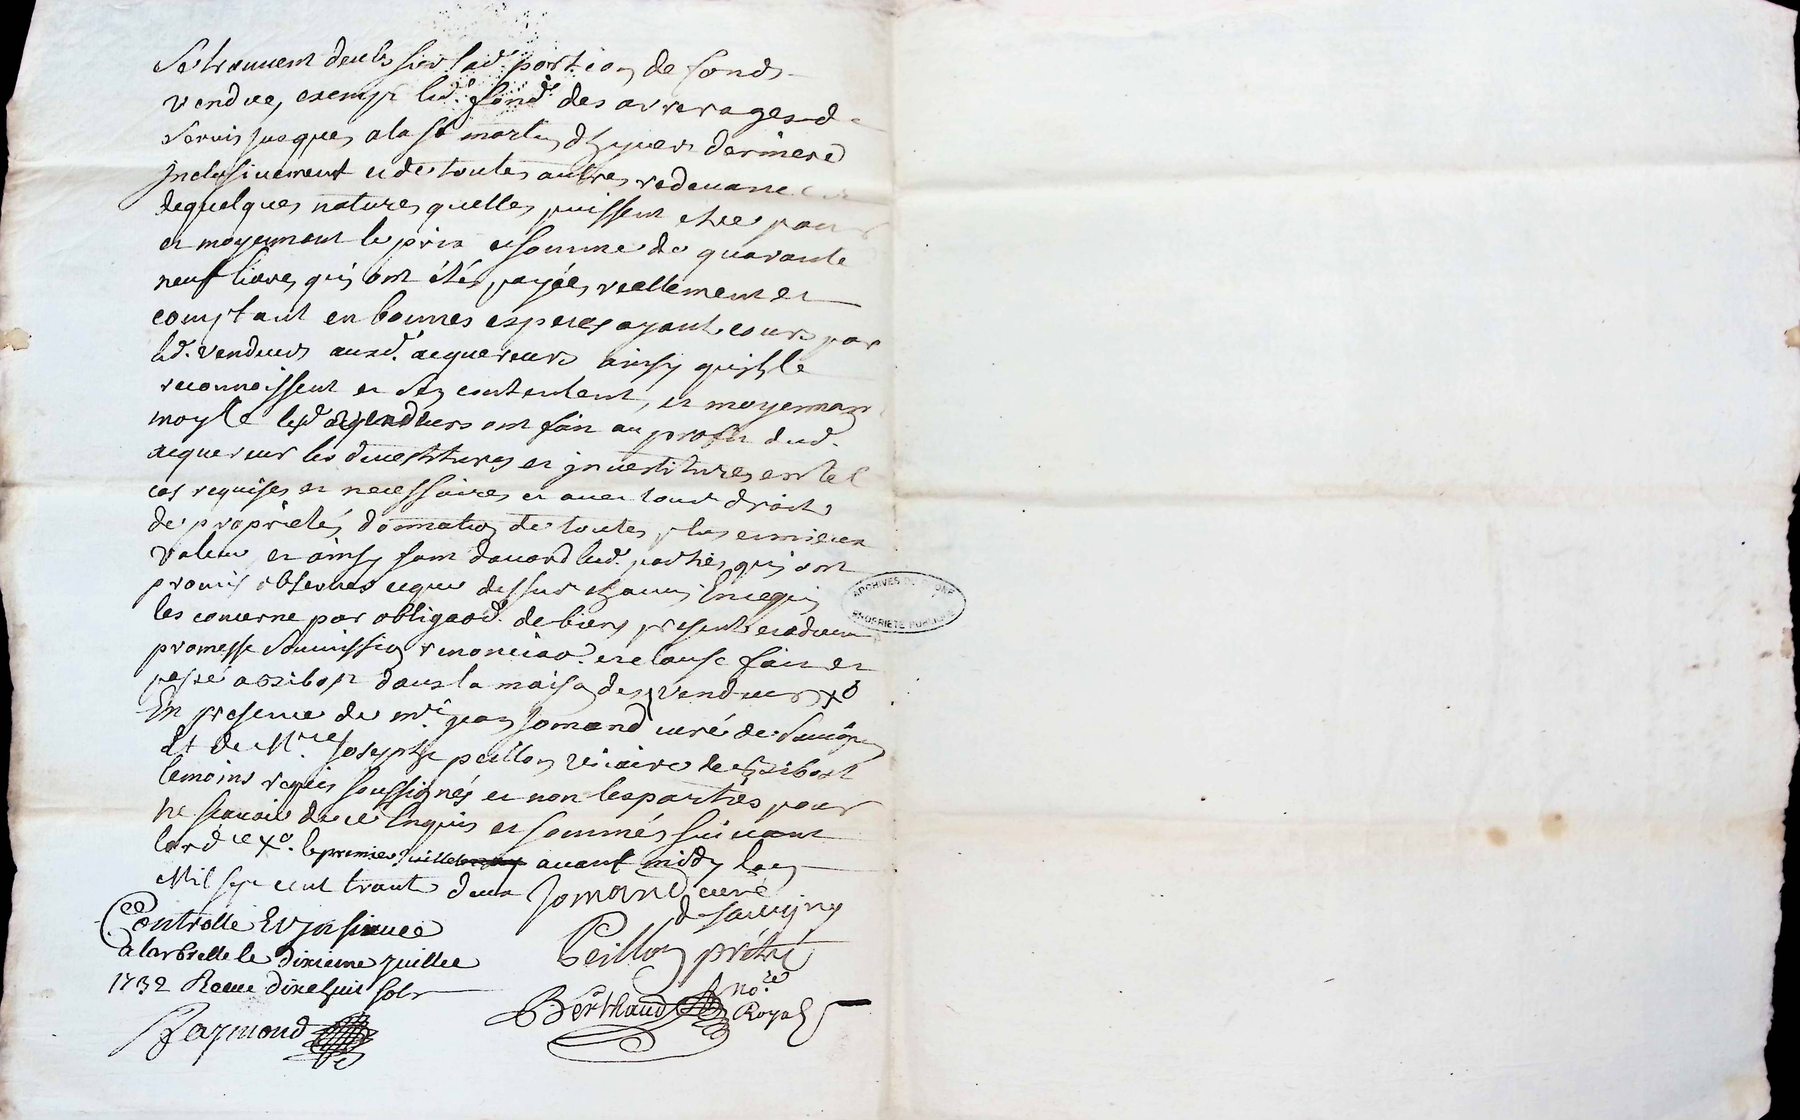 Se trouvent deubs sur lad portion de fonds
vendue, exempt lud. fond. des arrerages de
servis jusques a la st martin d'hyver derniere
Inclusivement et de toutes autres redevances
de quelques natures quelles puissent etre pour
et moyennant le prix et somme de quarante
neuf livres, qui ont étés payées reellement et
comptant en bonnes especes ayant cours par
led. vendeurs auxd. acquereurs ainsy quils le
reconnoissent et s'en contentent, et moyennant
moy ce lesd vendeurs ont fait au profit dud.
acquereur les devestitures et jnvestitures en tel
cas requises et necessaires et avec tous droits
de proprietés, domination de toutes plus et mieux
value et ainsy sont d'accord lesd. parties qui ont
promis observer ce que dessus chacun En ce qui
les concerne par obligaon. de biens presents et advenir
promesse soumission renonciaon. et clause fait et
passé a Bibost dans la maison des vendeurs
En presence de mre jean Jomand curé de Sauvigny
Et de Mre Joseph peillon vicaire de Bibost
temoins requis soussignés et non les parties pour
ne scavoir de ce Enquis et sommés suivant
lord ce xo. le premier juillet avant midy l'an
Mil sept cent trente deux Jomand curé
de sauvigny
Controllé Et jnsinué
a larbrelle le dixieme juillet
1732 Receu dixehuit sols
Raymond
Peillon prêtre
Berthaud nore
Royal
ARCHIVES DU RHONE
PROPRIETE PUBLIQUE